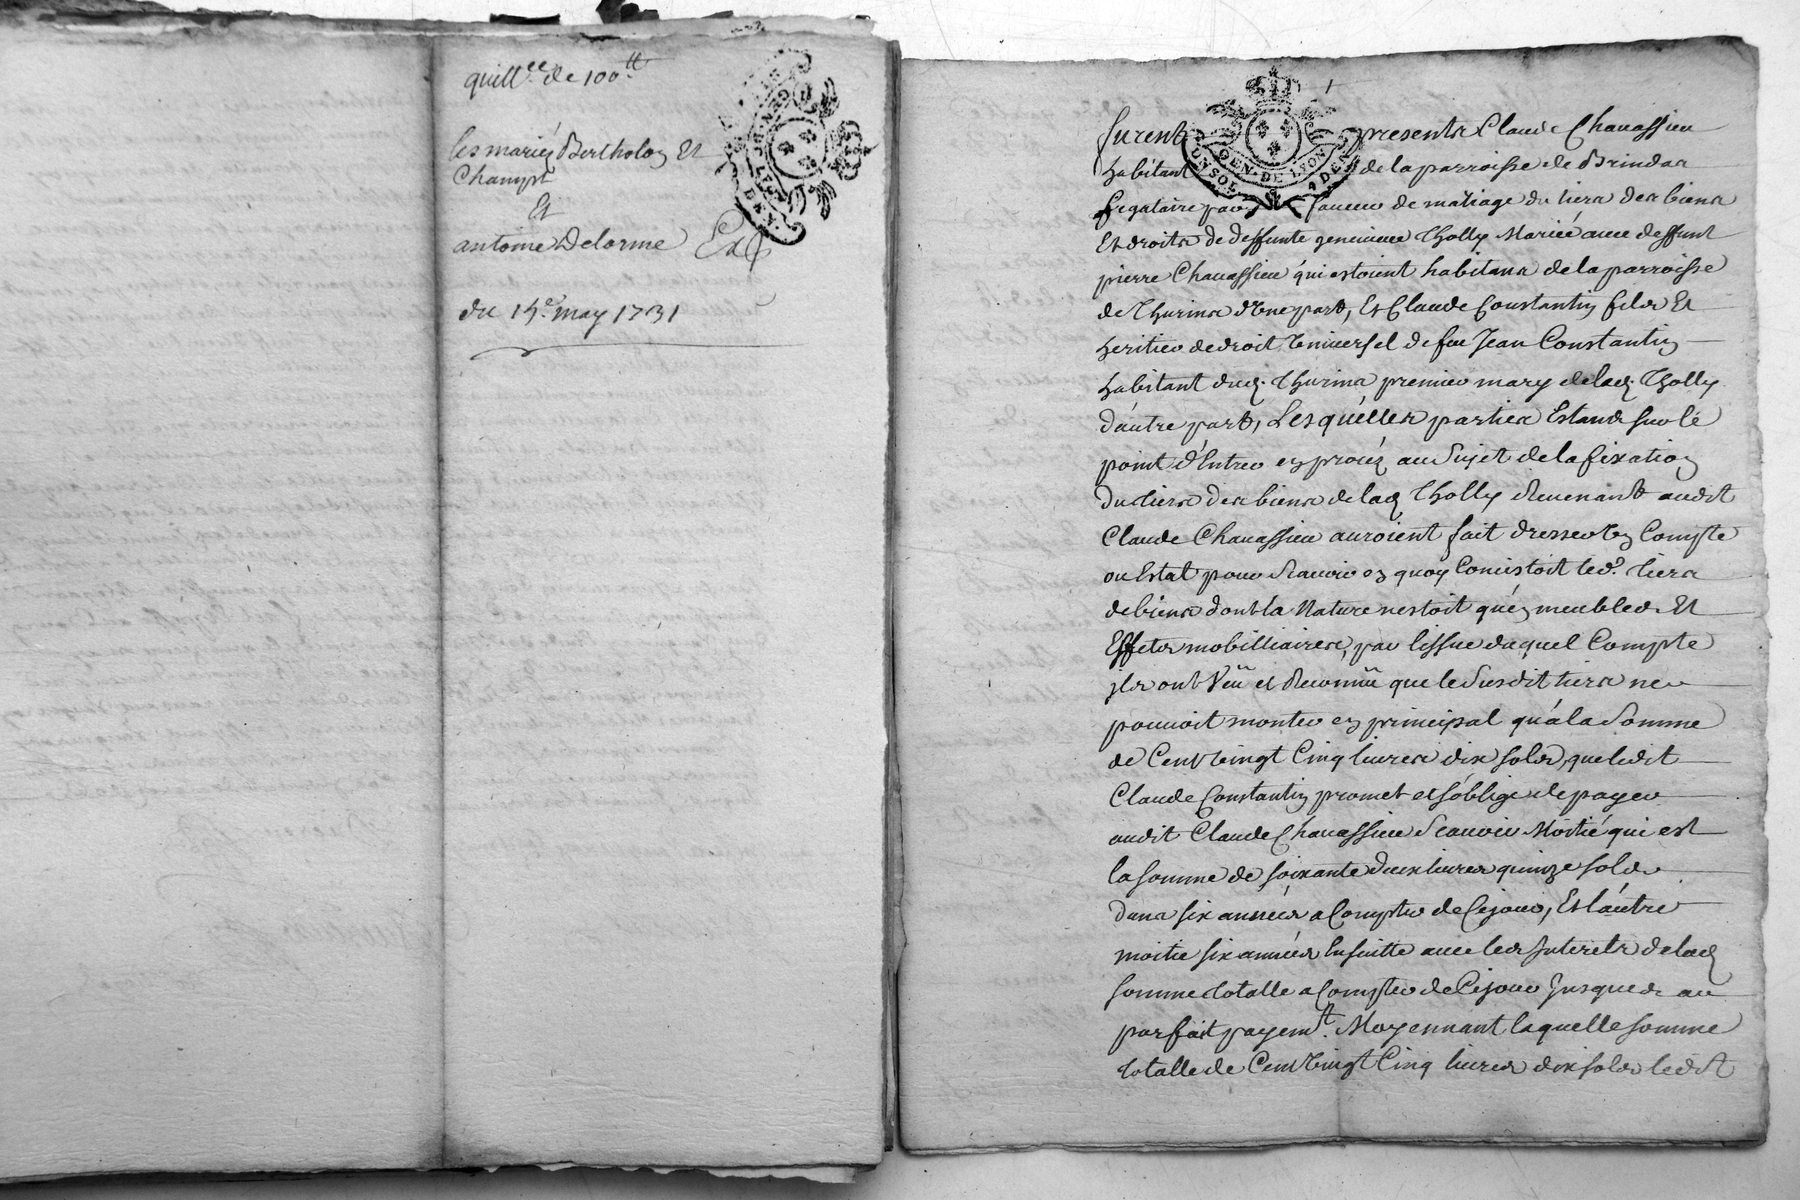 quitt.ce de 100.tt
les mariés Bertholon Et
Champt
Et
antoine Delorme Ex
du 15.e may 1731
GEN. DE LYON
furent presents Claude Chauassieu
GEN. DE LYON
UN SOL 4 DEN
habitant de la parroisse de Brindas
legataire par faueur de mariage du tiers des biens
Et droits de deffunte geneuieue Tholly Mariée auec deffunt
pierre Chauassieu qui estoient habitans de la parroisse
de Thurins d'Une part, Et Claude Constantin fils Et
heritier de droit Vniuersel de feu Jean Constantin
habitant dud. Thurins premier mary de lad. Tholly
d'autre part, Lesquelles parties Estants sur le
point d'Entrer en procéz au Sujet de la fixation
du tiers des biens de lad Tholly Reuenant audit
Claude Chauassieu auroient fait dresser Un Compte
ou Estat pour Scauoir en quoy Concistoit led.t tiers
de biens dont la Nature nestoit qu'en meubles Et
Effets mobilliaires, par lissue duquel Compte
ils ont Veu et Reconnu que le Susdit tiers ne
pouuoit monter en principal qu'a la Somme
de Cent Vingt Cinq liures dix sols, que ledit
Claude Constantin promet et s'oblige de payer
audit Claude Chauassieu Scauoir Moitié qui est
la somme de soixante deux liures quinze sols
dans six années a Compter de Cejour, Et l'autre
moitie six années Ensuitte auec les Interets de lad
somme totalle a Compter de Cejour Jusques au
parfait payem.t Moyennant laquelle somme
totalle de Cent Vingt Cinq liures dix sols ledit